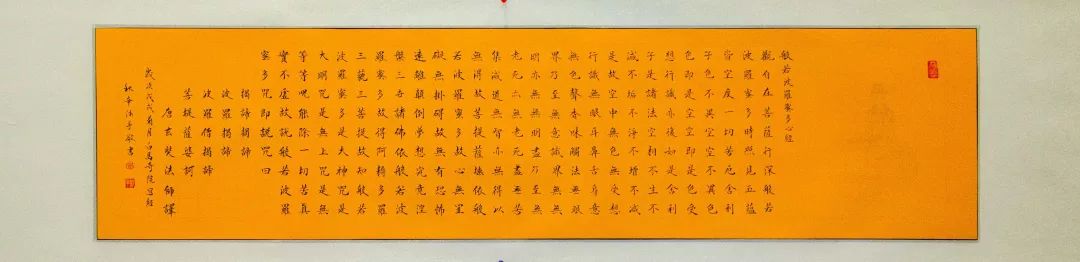 般若波羅蜜多心經
觀自在菩薩行深般若
波羅蜜多時照見五蘊
皆空度一切苦厄舍利
子色不異空空不異色
色即是空空即是色受
想行識亦復如是舍利
子是諸法空相不生不
滅不垢不淨不增不減
是故空中無色無受想
行識無眼耳鼻舌身意
無色聲香味觸法無眼
界乃至無意識界無無
明亦無無明盡乃至無
老死亦無老死盡無苦
集滅道無智亦無得以
無得故菩提薩埵依般
若波羅蜜多故心無罣
礙無掛礙故無有恐怖
遠離顛倒夢想究竟涅
槃三世諸佛依般若波
羅蜜多故得阿耨多羅
三藐三菩提故知般若
波羅蜜多是大神咒是
大明咒是無上咒是無
等等咒能除一切苦真
實不虛故說般若波羅
蜜多咒即說咒曰
揭諦揭諦
波羅揭諦
波羅僧揭諦
菩提薩婆訶
唐玄奘法師譯
歲次戊戌月白馬寺院寫經
秋沐手敬書